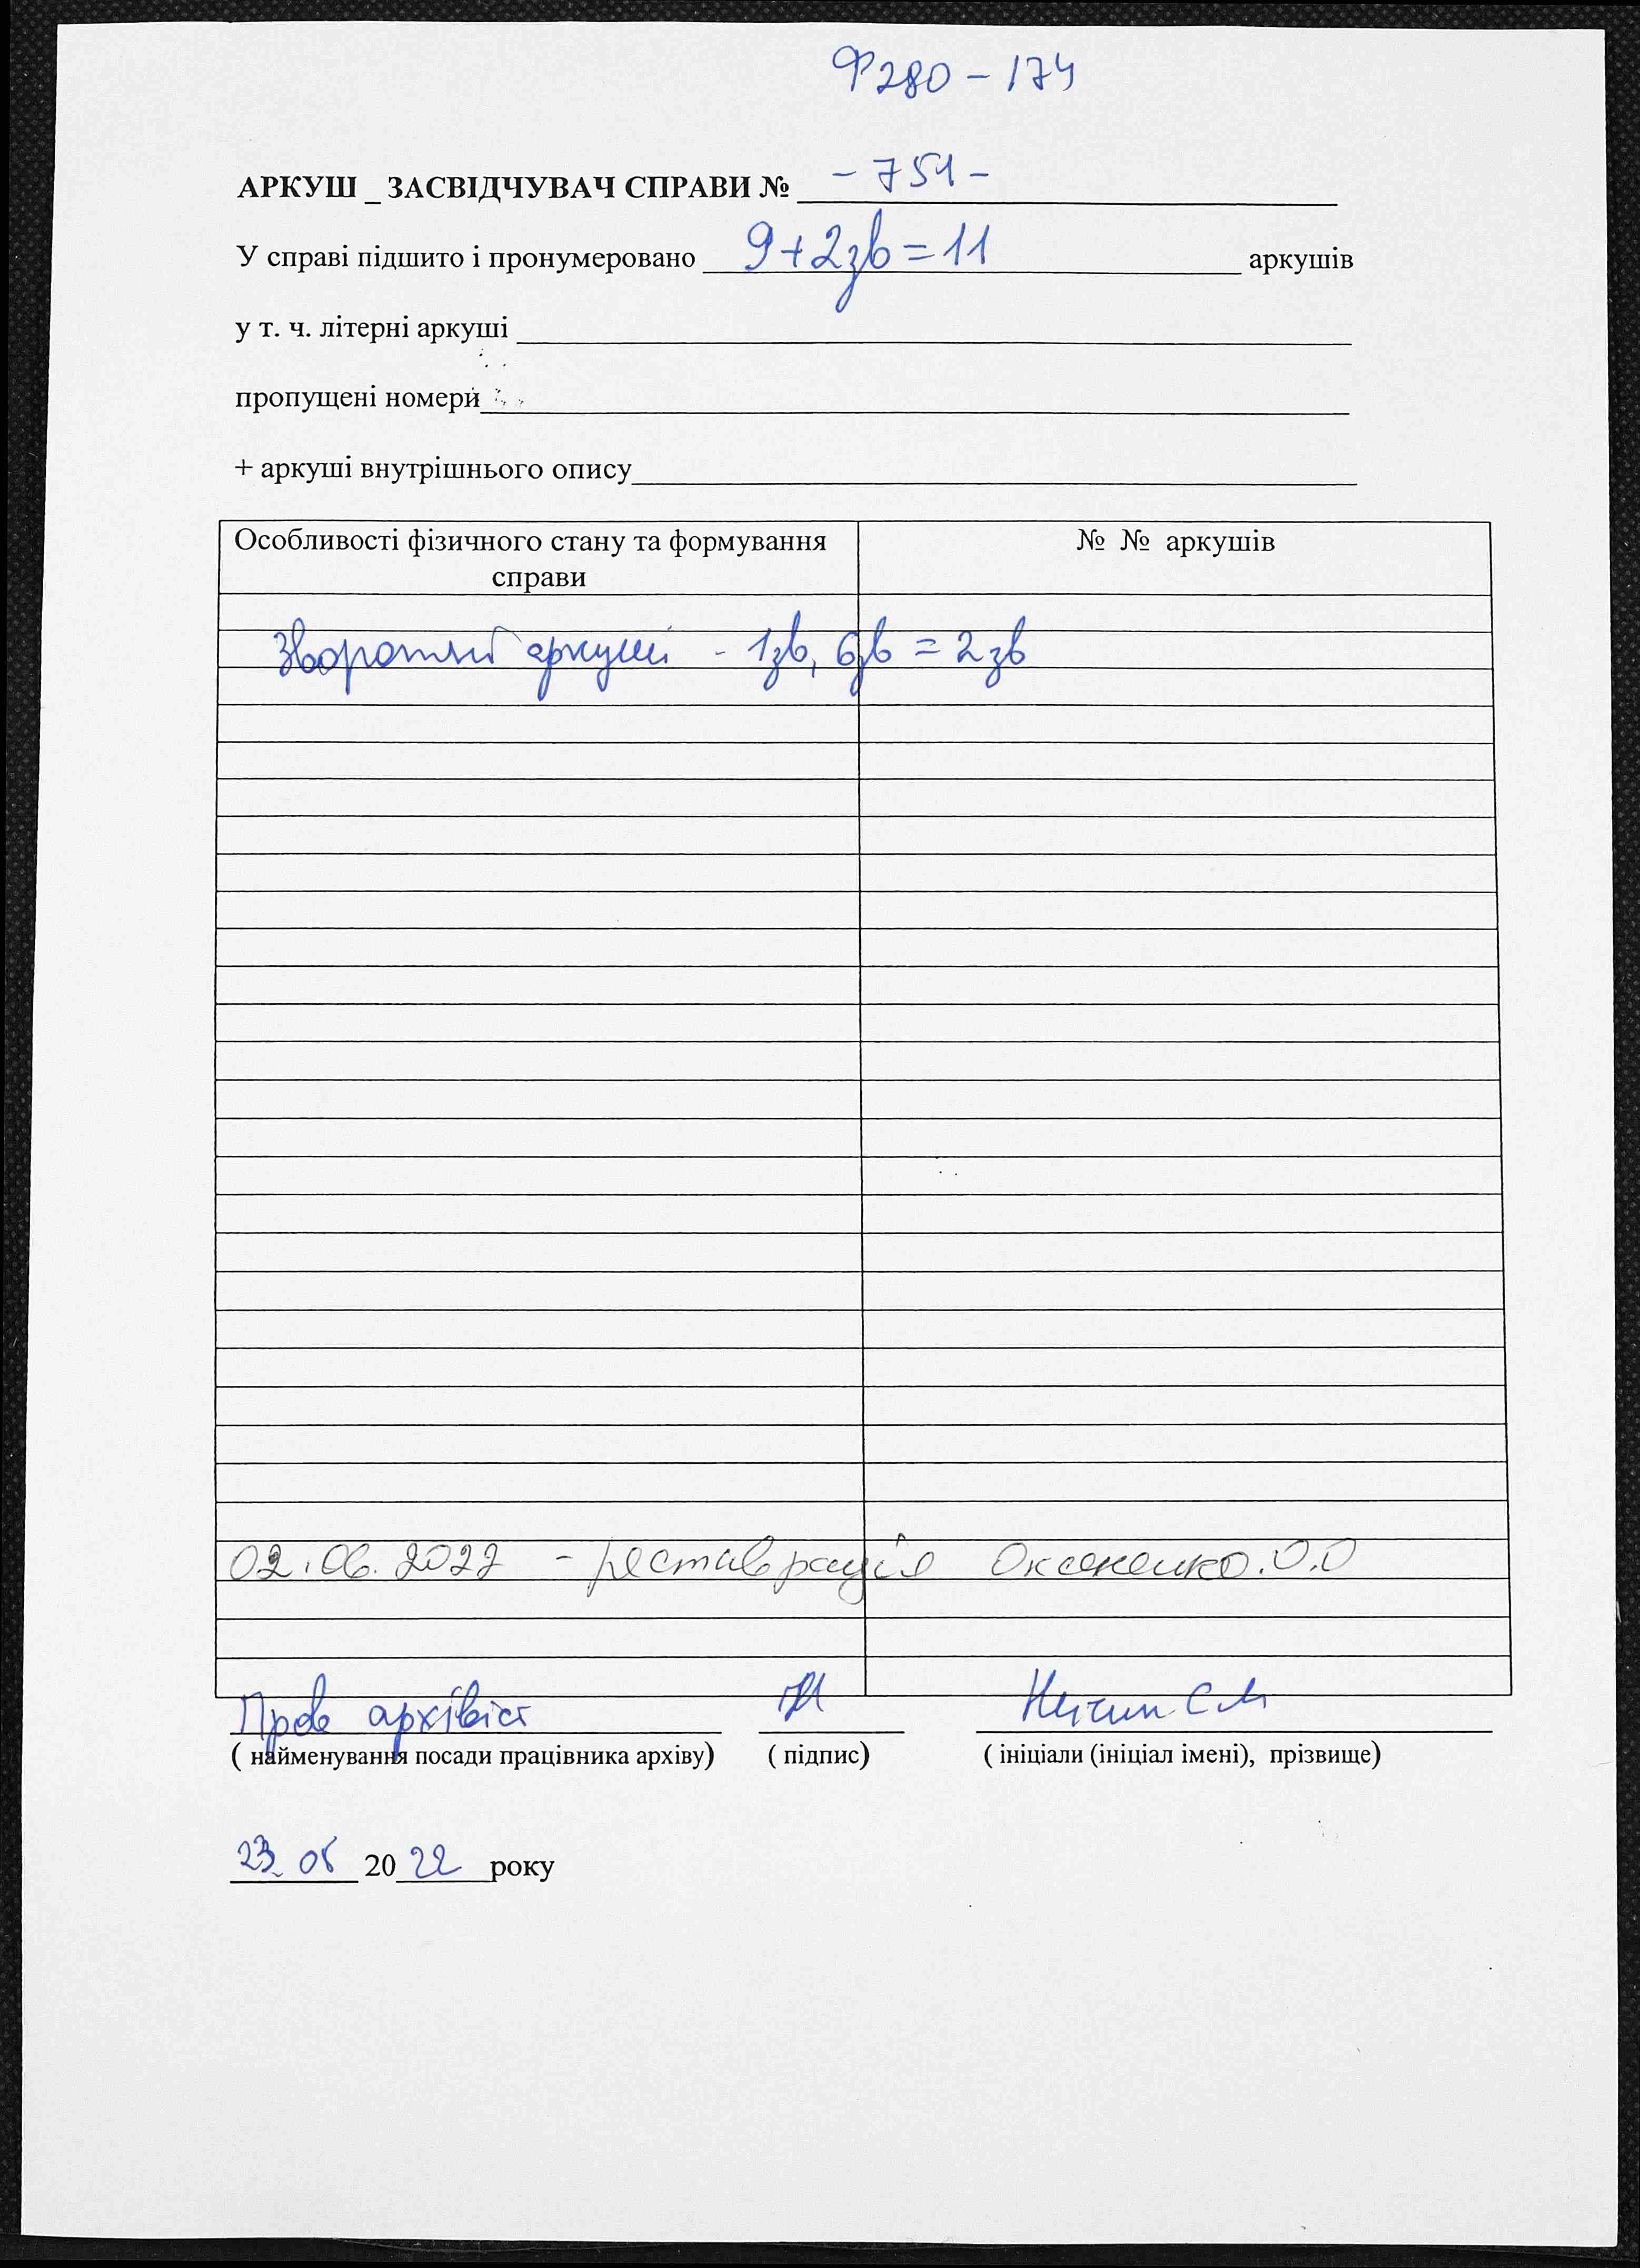 Ф280 – 174
АРКУШ _ ЗАСВІДЧУВАЧ СПРАВИ № – 751 –
У справі підшито і пронумеровано 9+2зв=11 аркушів
у т. ч. літерні аркуші
пропущені номери
+ аркуші внутрішнього опису
Особливості фізичного стану та формування справи № № аркушів
Зворотні аркуші - 1зв, 6зв = 2зв
02.06.2022 – реставрація Оксененко.О.О
Пров архівіст
( найменування посади працівника архіву) ( підпис) ( ініціали (ініціал імені), прізвище)
23 05 2022 року